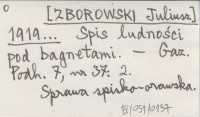 [ZBOROWSKI Juliusz]
1919... Spis ludności
pod bagnetami. — Gaz.
Podh. 7, nr 37: 2.
Sprawa spisko-orawska.